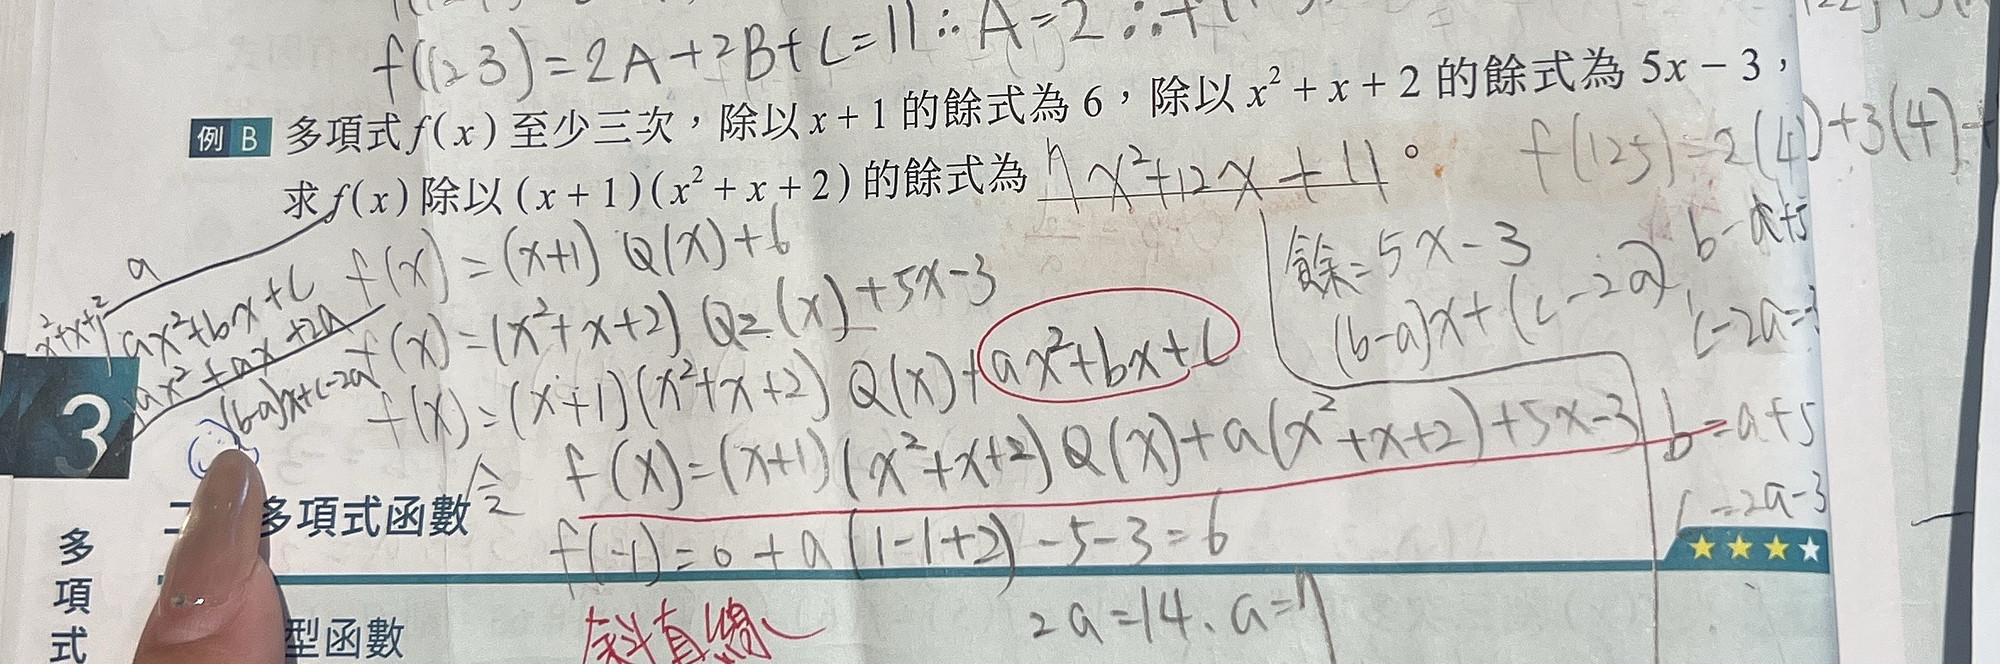 f(123)=2A+2B+C=11 ∴A=2 ∴
例 B 多項式 f(x) 至少三次，除以 x+1 的餘式為 6，除以 x²+x+2 的餘式為 5x-3，
求 f(x) 除以 (x+1)(x²+x+2) 的餘式為 7x²+12x+11。
f(125)=2(4)+3(4)+
f(x)=(x+1)Q(x)+6
f(x)=(x²+x+2)Q₂(x)+5x-3
f(x)=(x+1)(x²+x+2)Q(x)+ax²+bx+c
令 f(x)=(x+1)(x²+x+2)Q(x)+a(x²+x+2)+5x-3
f(-1)=0+a(1-1+2)-5-3=6
2a=14、a=7
a
ax²+bx+c
ax²+ax+2a
(b-a)x+c-2a
餘=5x-3
(b-a)x+(c-2a)
c-2a=-3
b=a+5
c=2a-3
3
多項式
多項式函數
型函數
斜直線